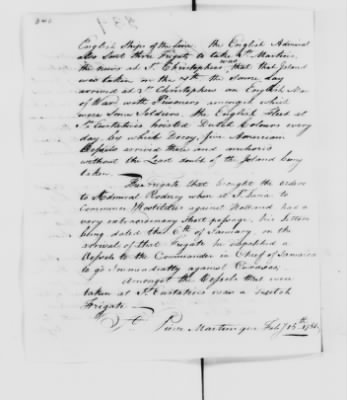 English Ships of the Line, the English Admiral
also sent three Frigats to take St. Martins,
the news at St. Christophers was that that Island
was taken on the 4th the same day
arrived at St. Christophers an English Man
of War with Prisoners amongst which
were some Soldiers, the English Fleet at
St. Eustatius hoisted Dutch Colours every
day, by which Decoy, five American
Vessels arrived there and anchor'd
without the Least doubt of the Island being
taken.
The Frigate that brought the orders
to Admiral Rodney when at St. Lucia to
commence Hostilities against Holland had a
very extraordinary short passage, his letters
being dated the 6th of January, on the
arrival of that Frigate he expedited a
Vessel to the Commander in Chief of Jamaica
to go immediately against Curacoa,
amongst the Vessels that were
taken at St. Eustatius was a Dutch
Frigate
St. Pierre Martinique Feby. 13th 1781